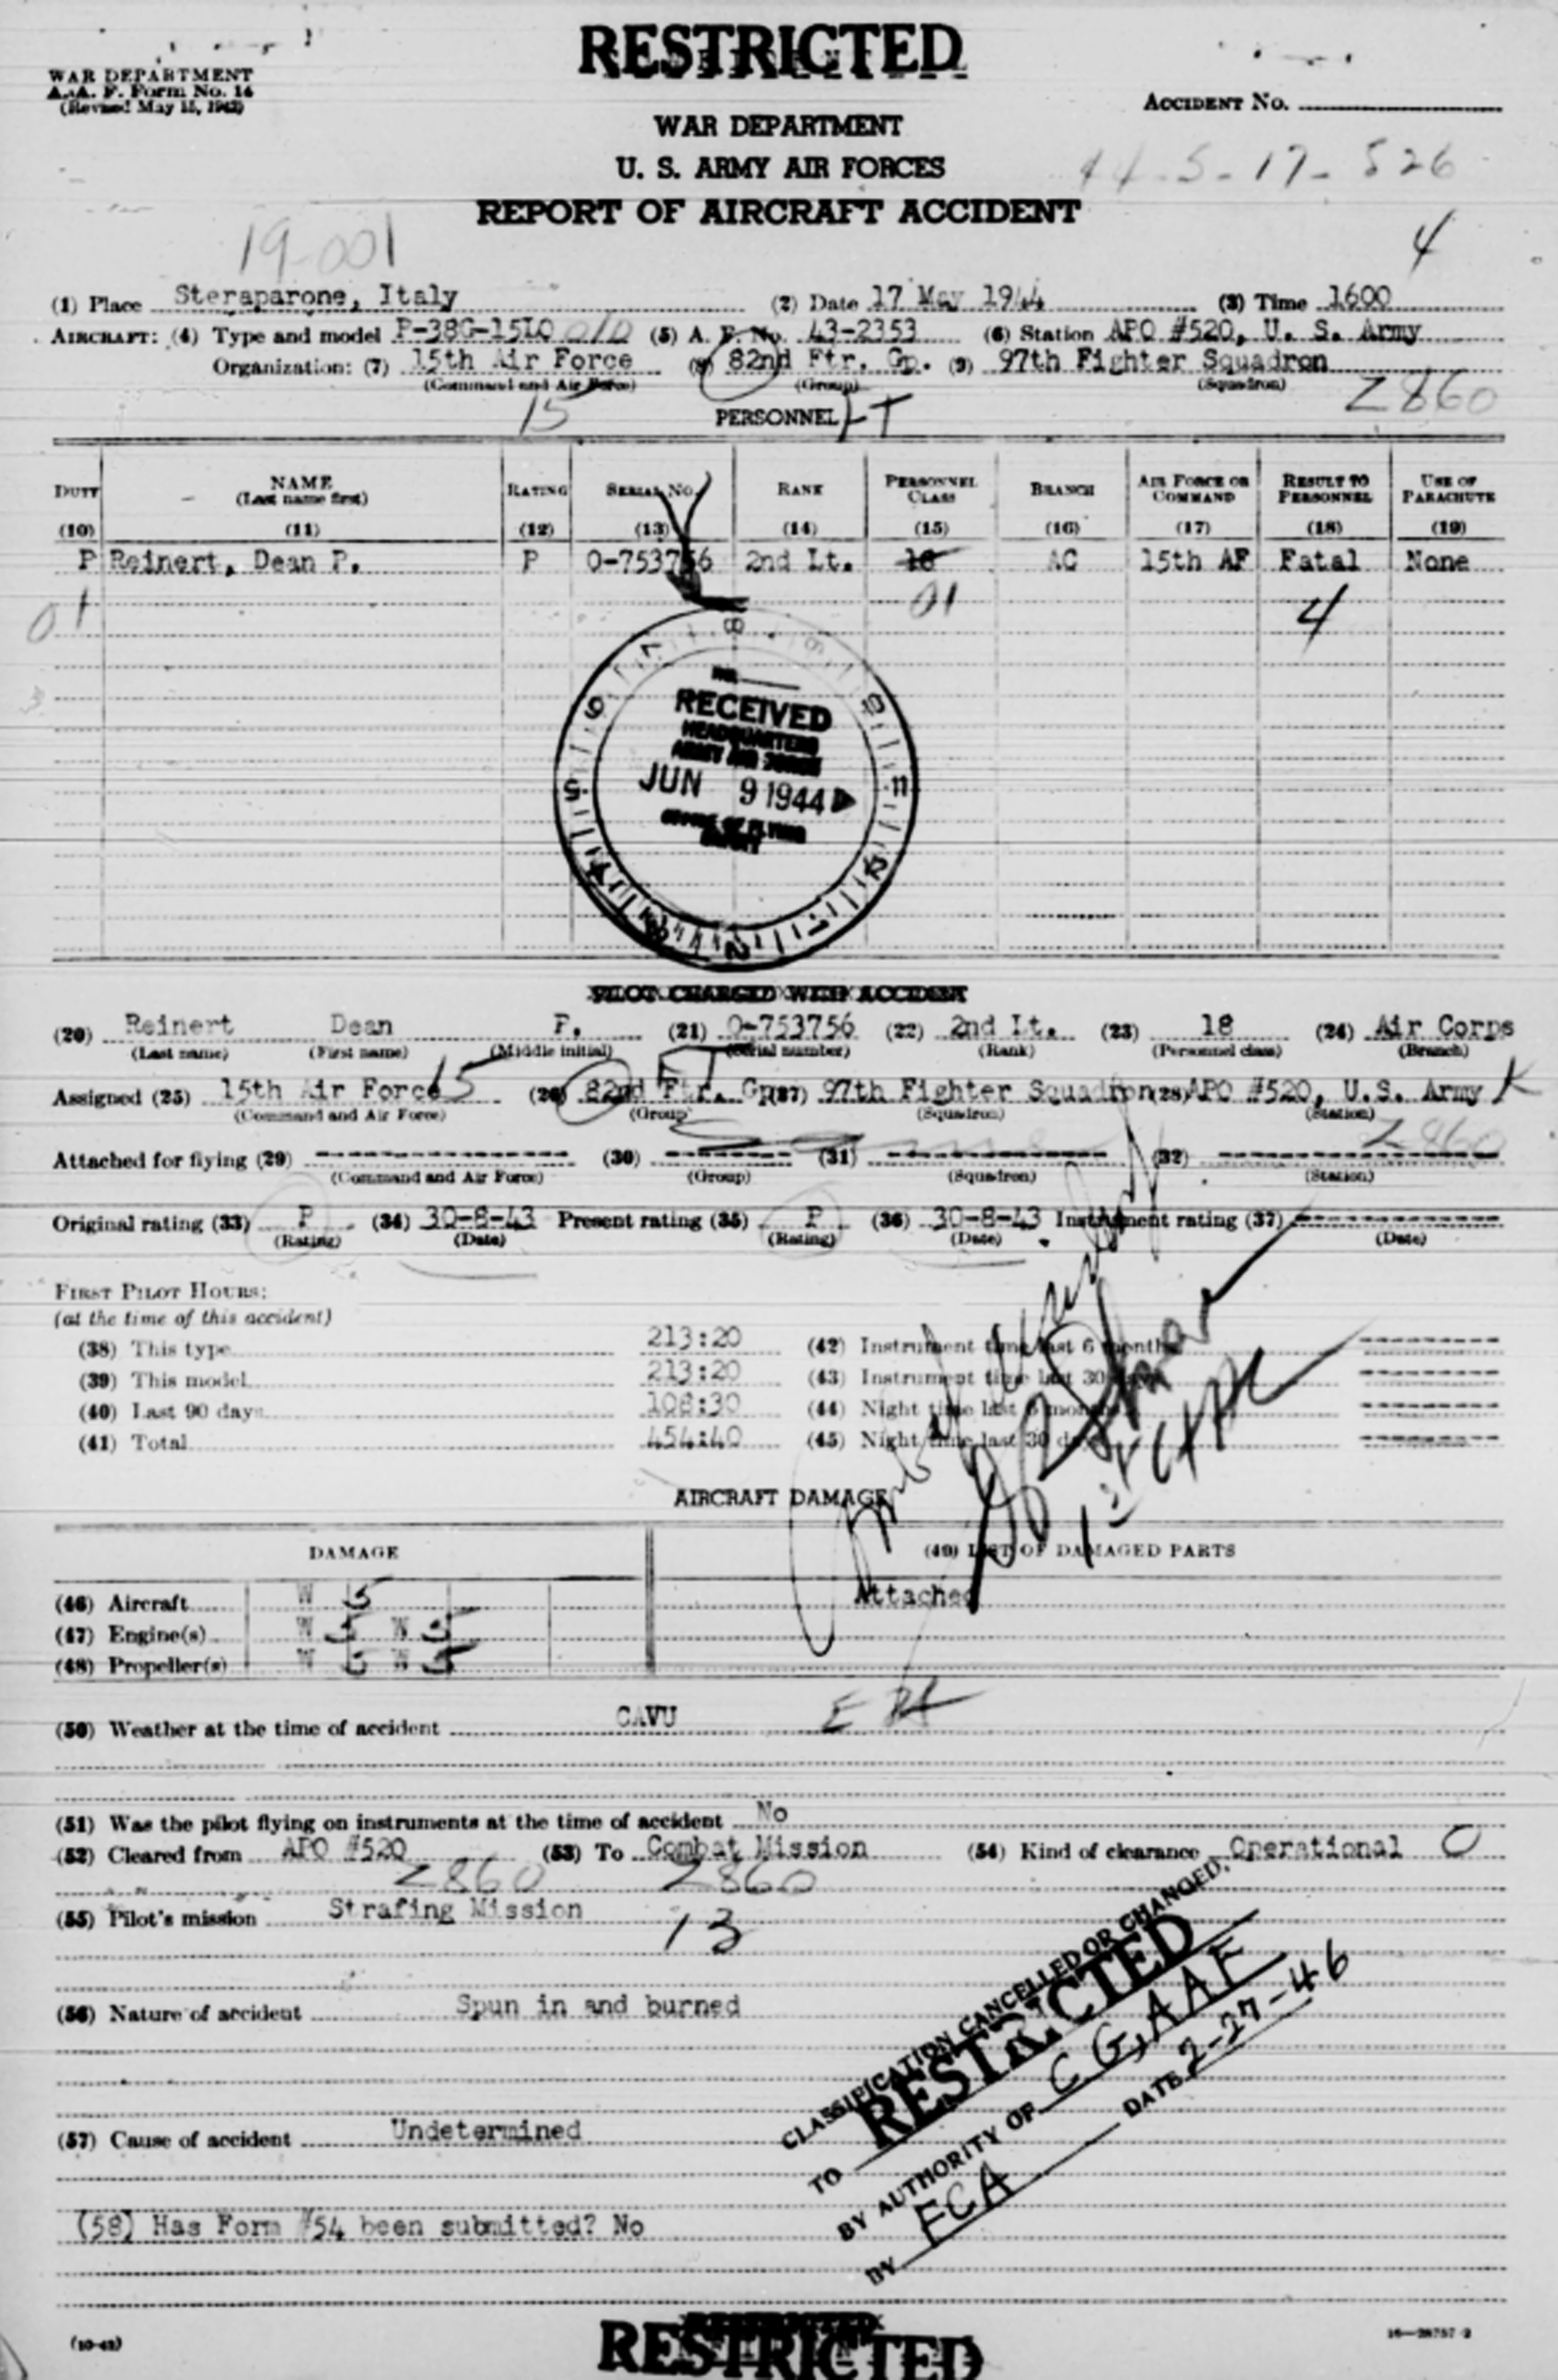 RESTRICTED
WAR DEPARTMENT
A. A. F. Form No. 14
(Revised May 15, 1942)
ACCIDENT No.
WAR DEPARTMENT
U. S. ARMY AIR FORCES
44-5-17-526
REPORT OF AIRCRAFT ACCIDENT
19-001
4
(1) Place Steraparone, Italy (2) Date 17 May 1944 (3) Time 1600
AIRCRAFT: (4) Type and model P-38G-15LO (5) A. F. No. 43-2353 (6) Station APO #520, U. S. Army
Organization: (7) 15th Air Force (8) 82nd Ftr. Gp. (9) 97th Fighter Squadron
(Command and Air Force) (Group) (Squadron)
15 2860
PERSONNEL
DUTY NAME (Last name first) RATING SERIAL No. RANK PERSONNEL CLASS BRANCH AIR FORCE OR COMMAND RESULT TO PERSONNEL USE OF PARACHUTE
(10) (11) (12) (13) (14) (15) (16) (17) (18) (19)
P Reinert, Dean P. P O-753756 2nd Lt. 18 AC 15th AF Fatal None
01 01 4
RECEIVED
HEADQUARTERS
ARMY AIR FORCES
JUN 9 1944
PILOT CHARGED WITH ACCIDENT
(20) Reinert Dean P. (21) O-753756 (22) 2nd Lt. (23) 18 (24) Air Corps
(Last name) (First name) (Middle initial) (Serial number) (Rank) (Personnel class) (Branch)
Assigned (25) 15th Air Force 15 (26) 82nd Ftr. Gp (27) 97th Fighter Squadron (28) APO #520, U.S. Army K
(Command and Air Force) (Group) (Squadron) (Station)
2860
Attached for flying (29) (30) (31) (32)
(Command and Air Force) (Group) (Squadron) (Station)
Original rating (33) P (34) 30-8-43 Present rating (35) P (36) 30-8-43 Instrument rating (37)
(Rating) (Date) (Rating) (Date) (Date)
FIRST PILOT HOURS:
(at the time of this accident)
(38) This type 213:20 (42) Instrument time last 6 months
(39) This model 213:20 (43) Instrument time last 30 days
(40) Last 90 days 108:30 (44) Night time last 6 months
(41) Total 454:40 (45) Night time last 30 days
AIRCRAFT DAMAGE
DAMAGE (49) LIST OF DAMAGED PARTS
(46) Aircraft W 5 Attached
(47) Engine(s) W 5 W 5
(48) Propeller(s) W 5 W 5
(50) Weather at the time of accident CAVU
(51) Was the pilot flying on instruments at the time of accident No
(52) Cleared from APO #520 (53) To Combat Mission (54) Kind of clearance Operational O
2860 2860
(55) Pilot's mission Strafing Mission
13
(56) Nature of accident Spun in and burned
(57) Cause of accident Undetermined
(58) Has Form #54 been submitted? No
CLASSIFICATION CANCELLED OR CHANGED,
TO RESTRICTED
BY AUTHORITY OF C G, AAF
BY FCA DATE 2-27-46
(10-42)
16-28757-2
RESTRICTED